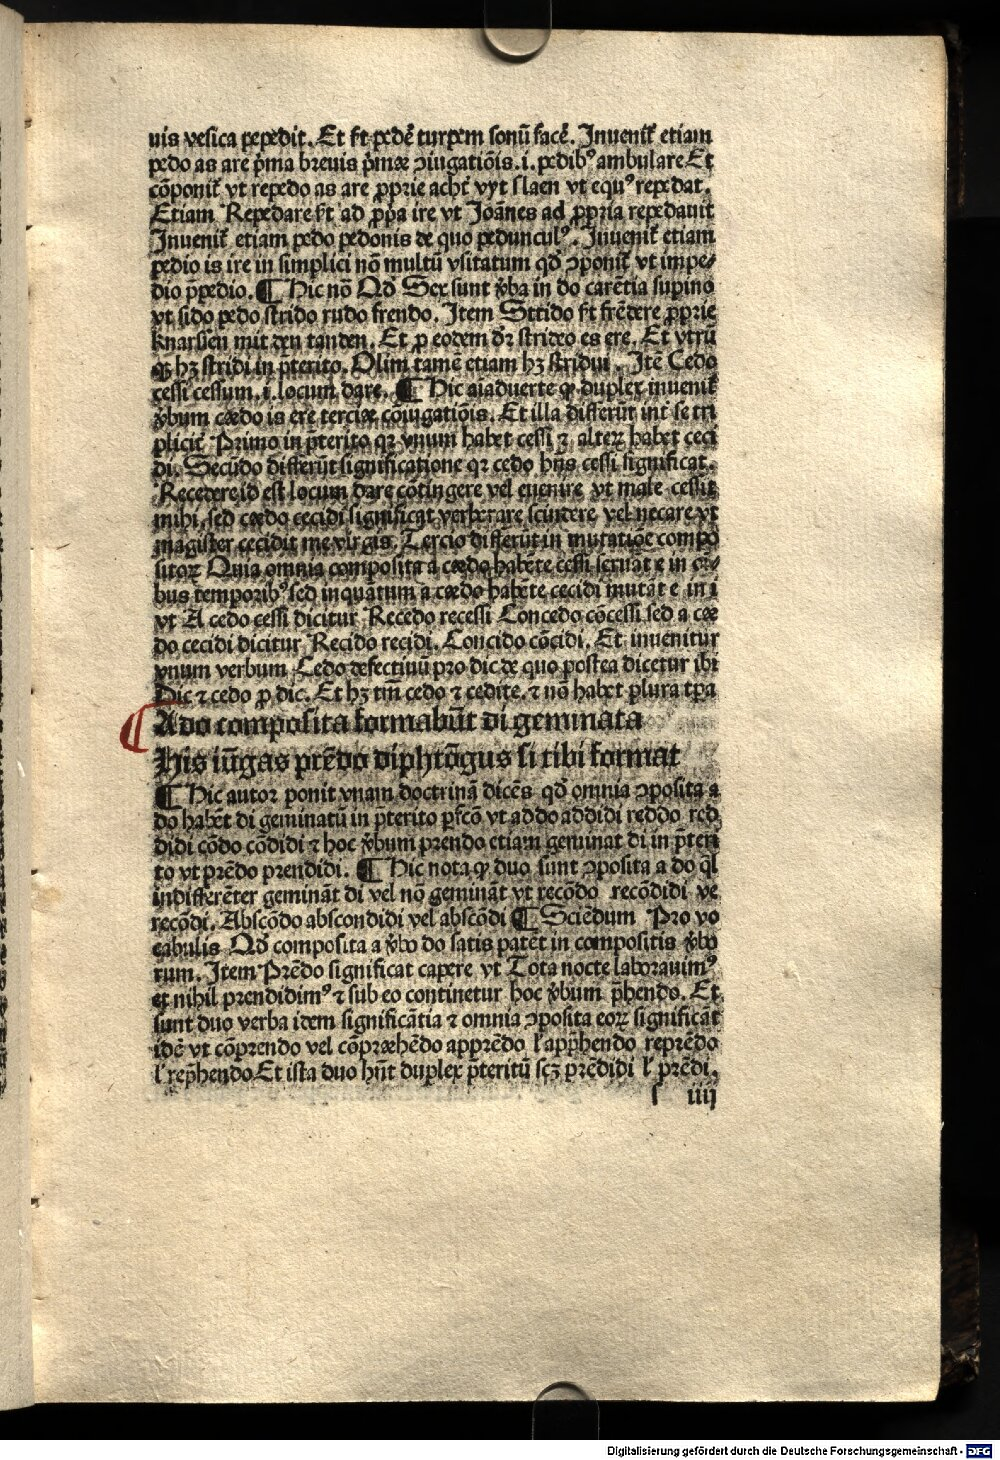 uis vesica pepedit. Et ſt pedē turpem ſonū facē. Inueniť etiam
pedo as are p̄ma breuis p̄mæ ↄiugatiōis. i. pedibꝰ ambulare Et
cōponiť vt repedo as are ꝓprie achť vyt ſlaen vt equꝰ repedat.
Etiam Repedare ſt ad ꝓp̄a ire vt Joānes ad ꝓpria repedauit
Inueniť etiam pedo pedonis de quo pedunculꝰ. Inueniť etiam
pedio is ire in ſimplici nō multū vſitatum qd̄ ↄponiť vt impe⸗
dio p̄pedio. ¶ Hic nō Qd̄ Sex ſunt v̄ba in do carētia ſupino
vt ſido pedo ſtrido rudo frendo. Item Strido ſt frēdere ꝓprie
knarſien mit den tanden. Et ꝓ eodem dr̄ ſtrideo es ere. Et vtrū
ꝙ hꝫ ſtridi in p̄terito. Olim tamē etiam hꝫ ſtridui. Itē Cedo
ceſſi ceſſum. i. locum dare. ¶ Hic aīaduerte ꝙ duplex inueniť
v̄bum cædo is ere terciæ cōiugatiōis. Et illa differūt int̄ ſe tri
pliciť Primo in p̄terito qꝛ vnum habet ceſſi ⁊ alteꝝ habet ceci
di. Secūdo differūt ſignificatione qꝛ cedo hn̄s ceſſi ſignificat.
Recedere id eſt locum dare cōtingere vel euenire vt male ceſſit
mihi. ſed cædo cecidi ſignificat verberare ſcindere vel necare vt
magiſter cecidit me virgis. Tercio differūt in mutatiōe compo
ſitoꝝ Quia omnia compoſita a cædo habēte ceſſi ſeruāt e in oī⸗
bus temporibꝰ ſed inquātum a cædo habēte cecidi mutāt e in i
vt A cedo ceſſi dicitur Recedo receſſi Concedo cōceſſi ſed a cæ
do cecidi dicitur Recido recidi. Concido cōcidi. Et inuenitur
vnum verbum Cedo defectiuū pro dic de quo poſtea dicetur ibi
Dic ⁊ cedo ꝓ dic. Et hꝫ tm̄ cedo ⁊ cedite. ⁊ nō habet plura tp̄a
A do compoſita formabūt di geminata
His iūgas prēdo diphtōgus ſi tibi format
¶ Hic autor ponit vnam doctrinā dicēs qd̄ omnia ↄpoſita a
do habēt di geminatū in p̄terito pfcō vt addo addidi reddo red
didi cōdo cōdidi ⁊ hoc v̄bum prendo etiam geminat di in p̄teri
to vt prēdo prendidi. ¶ Hic nota ꝙ duo ſunt ↄpoſita a do q̄l
indifferēter geminā̄t di vel nō gemināt vt recōdo recōdidi ve
recōdi. Abſcōdo abſcondidi vel abſcōdi ¶ Sciēdum Pro vo
cabulis Qd̄ compoſita a v̄bo do ſatis patēt in compoſitis v̄bo
rum. Item Prēdo ſignificat capere vt Tota nocte laborauimꝰ
et nihil prendidimꝰ ⁊ ſub eo continetur hoc v̄bum p̄hendo. Et
ſunt duo verba idem ſignificātia ⁊ omnia ↄpoſita eoꝝ ſignificāt
idē vt cōprendo vel cōpræhēdo apprēdo l̓ app̄hendo reprēdo
l̓ rep̄hendo Et iſta duo hn̄t duplex p̄teritū ſcꝫ prēdidi l̓ prēdi.
l iiii
Digitalisierung gefördert durch die Deutsche Forschungsgemeinschaft - DFG